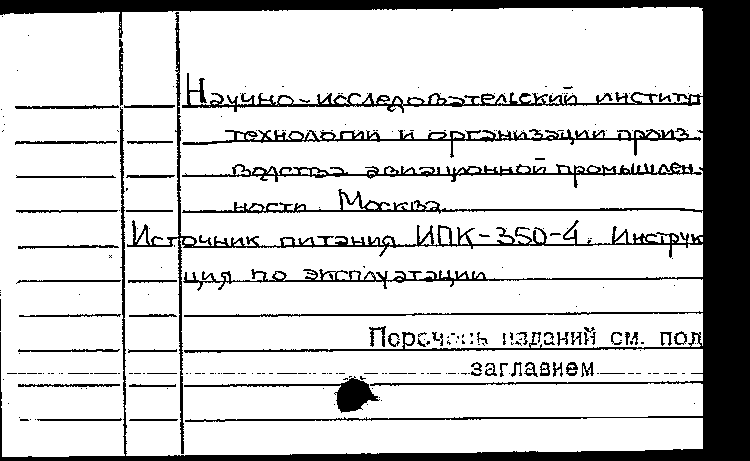 Научно-исследовательский институт
технологии и организации произ-
водства авиационной промышлен-
ности. Москва.
Источник питания ИПК-350-4. Инструк
ция по эксплуатации
Перечень изданий см. под
заглавием